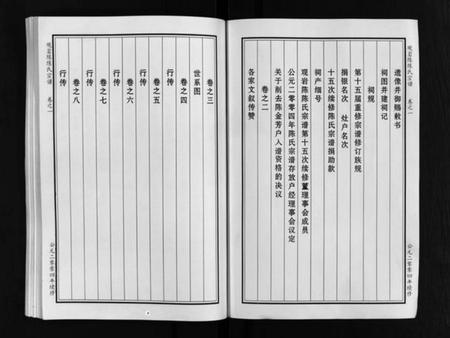 观岩陈陈氏宗谱 卷之一
遗像并御赐敕书
祠图并建祠记
祠规
第十五届重修宗谱修订族规
捐银名次 灶户名次
十五次续修陈氏宗谱捐助款
祠产细号
观岩陈陈氏宗谱第十五次续修董理事会成员
公元二零零四年陈氏宗谱存放户经理事会议定
关于削去陈金芳户入谱资格的决议
卷之二
各家文叙传赞
公元二零零四年续修
卷之三
世系图
卷之四
行传
卷之五
行传
卷之六
行传
卷之七
行传
卷之八
行传
观岩陈陈氏宗谱 卷之一
公元二零零四年续修